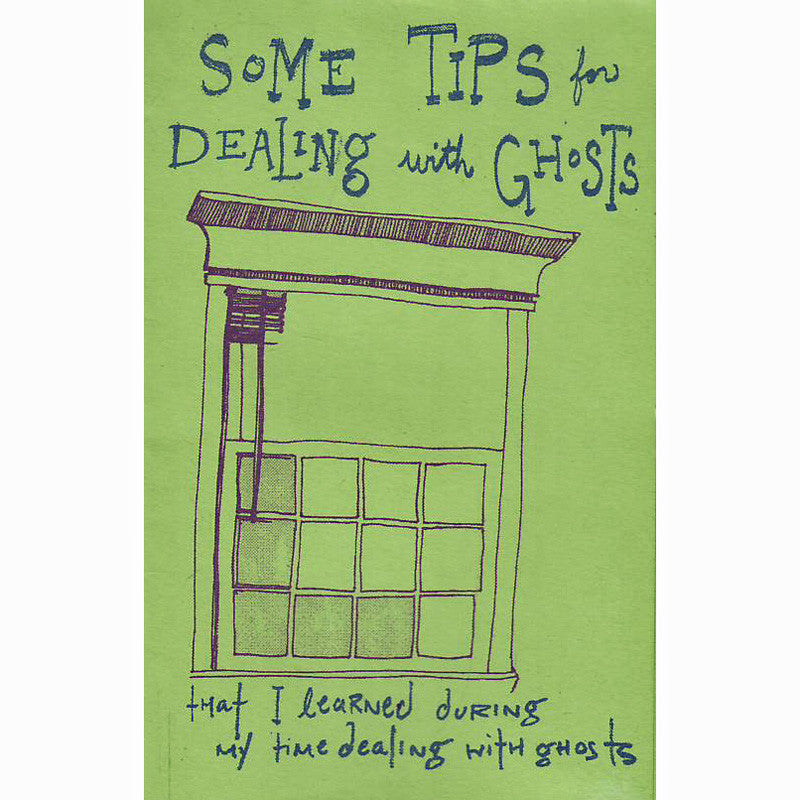 SoME TIPS for
DEALING with GHoSTS
tHat I leaRNed duRING
my time dealing witH ghosts